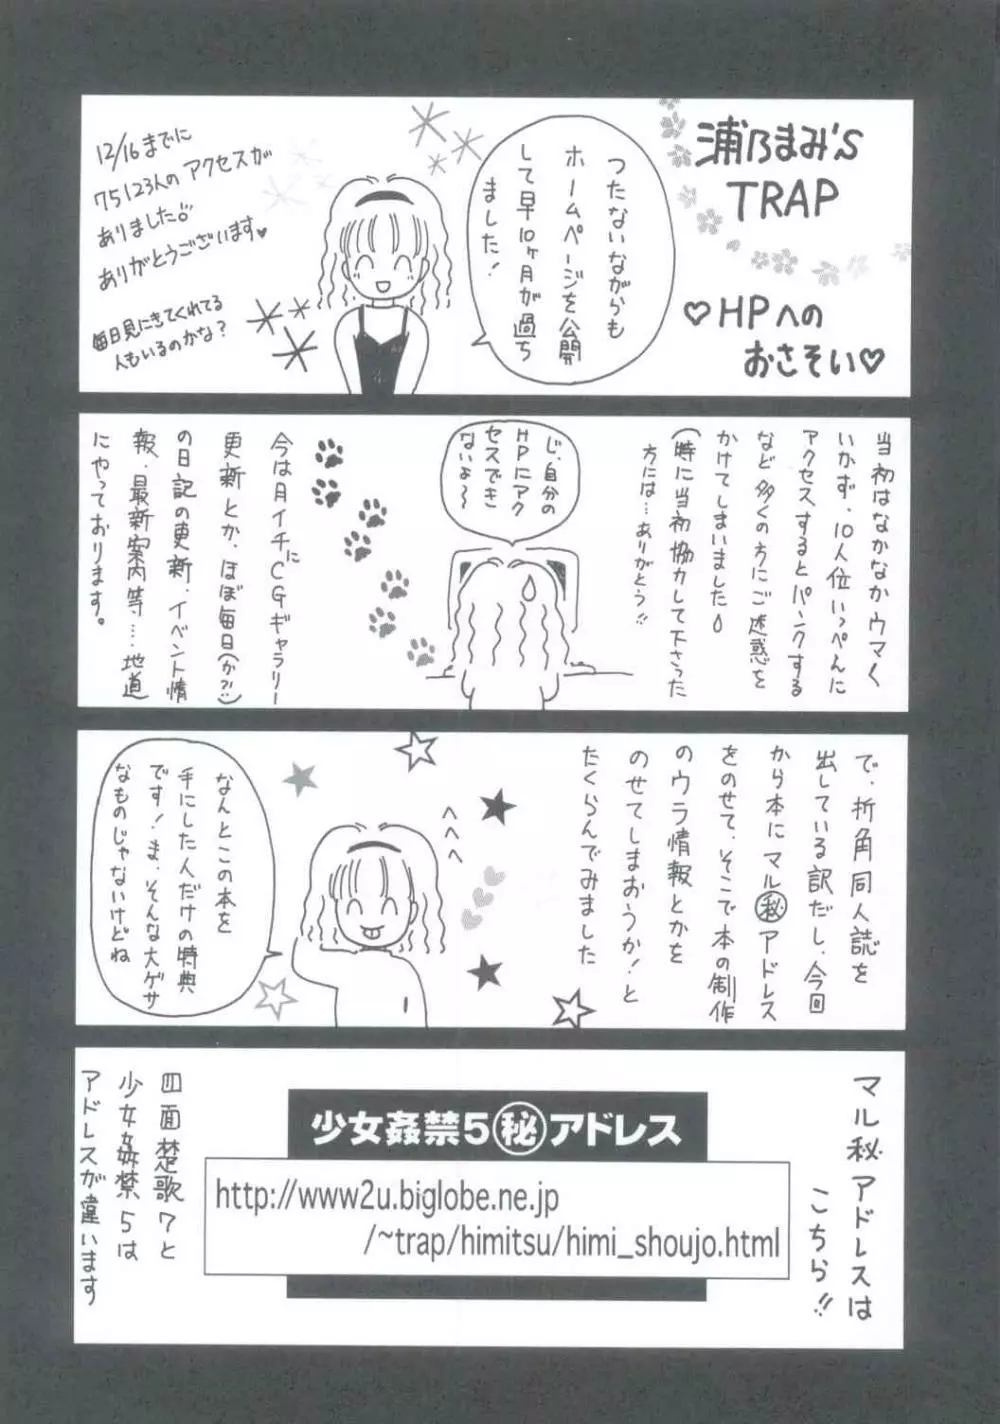 浦乃まみ's
TRAP
♡HPへの
おさそい♡
つたないながらも
ホームページを公開
して早10ヶ月が過ち
ました!
12/16までに
75123人のアクセスが
ありました
ありがとうございます♥
毎日見にきてくれてる
人もいるのかな?
当初はなかなかウマく
いかず、10人位いっぺんに
アクセスするとパンクする
など多くの方にご迷惑を
かけてしまいました
(特に当初協力して下さった
方には…ありがとう!!
じ、自分の
HPにアク
セスでき
ないよ〜
今は月イチに
CGギャラリー
更新とか、ほぼ毎日(か?!)
の日記の更新、イベント情
報、最新案内等…地道
にやっております。
で、折角同人誌を
出している訳だし、今回
から本にマル㊙アドレス
をのせて、そこで本の制作
のウラ情報とかを
のせてしまおうか!と
たくらんでみました
へへへ
なんとこの本を
手にした人だけの特典
です!ま、そんな大ゲサ
なものじゃないけどね
マル秘アドレスは
こちら!!
少女姦禁5㊙アドレス
http://www2u.biglobe.ne.jp
/~trap/himitsu/himi_shoujo.html
四面楚歌7と
少女姦禁5は
アドレスが違います